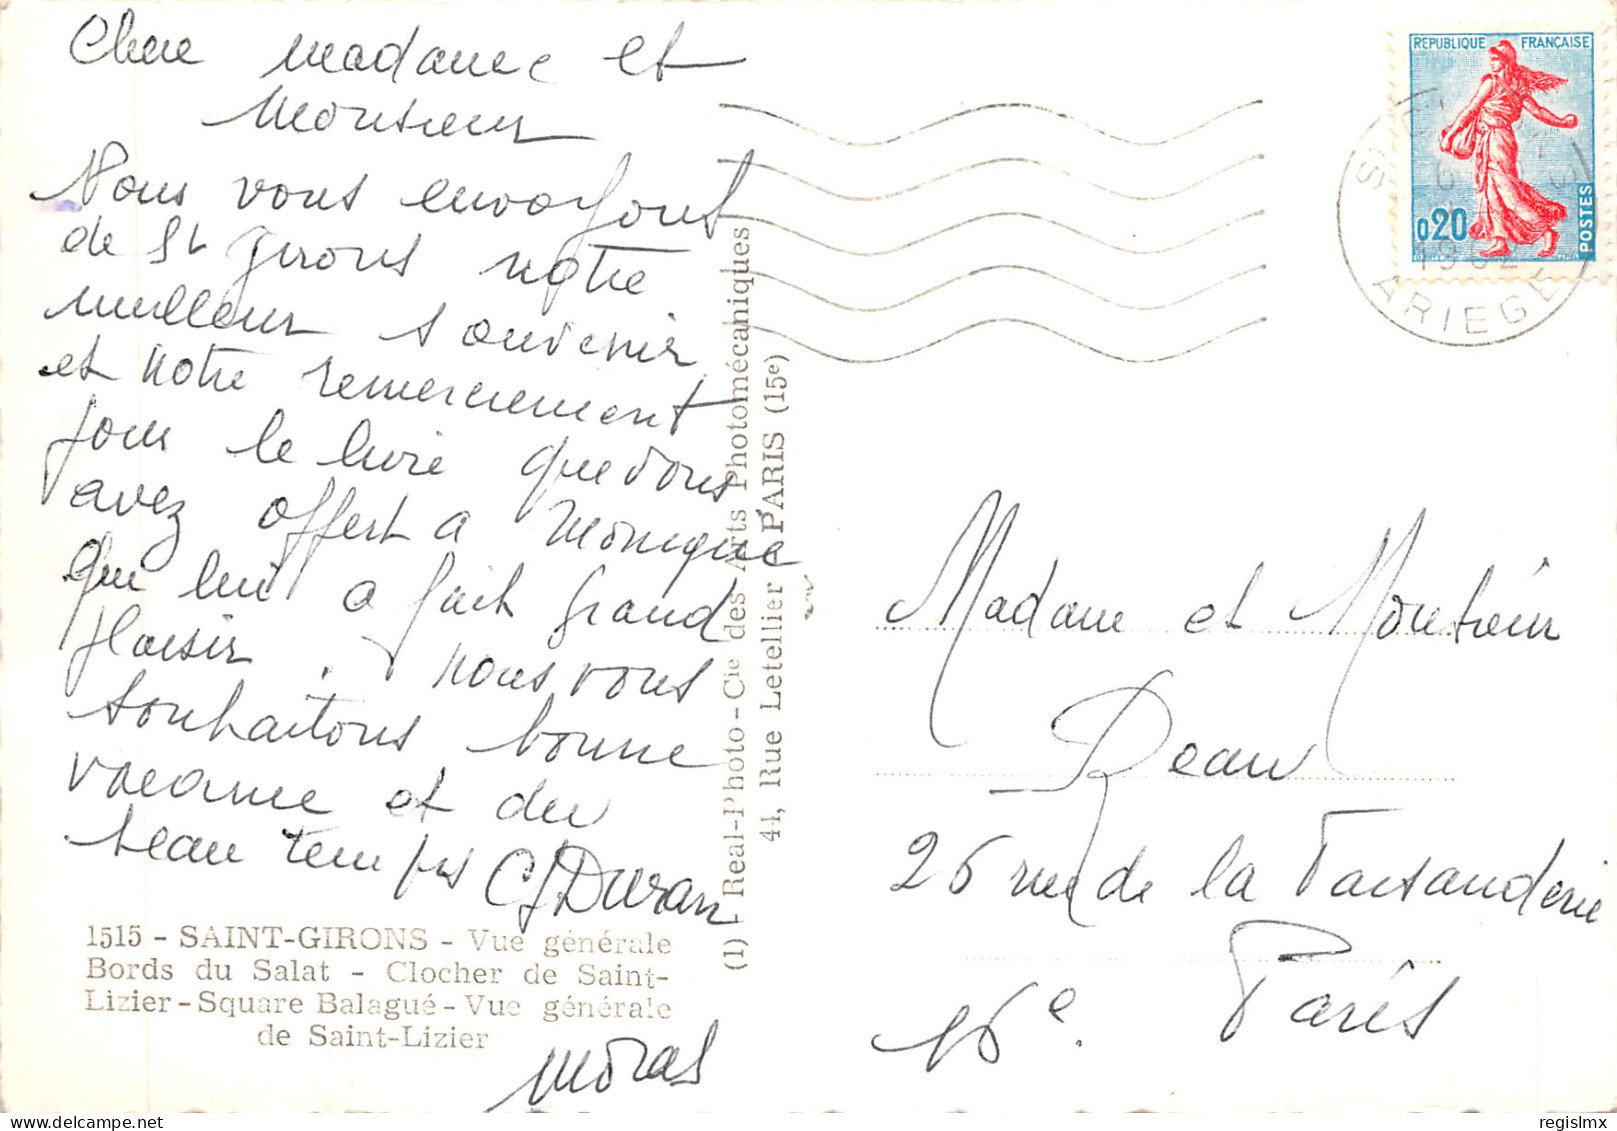 Chere madame et
Monsieur
Nous vous envoyons
de St Girons notre
meilleur souvenir
et notre remerciement
pour le livre que vous
avez offert a Monique
qui lui a fait grand
plaisir. nous vous
souhaitons bonne
vacance et du
beau temps
Duran
Moras
1515 - SAINT-GIRONS - Vue générale
Bords du Salat - Clocher de Saint-
Lizier - Square Balagué - Vue générale
de Saint-Lizier
(1) Real-Photo - Cie des Arts Photomécaniques
44, Rue Letellier PARIS (15e)
REPUBLIQUE FRANÇAISE
0,20
POSTES
1962
ARIEGE
Madame et Monsieur
Beau
26 rue de la Faisanderie
Paris
16e.
regislmx
delcampe.net